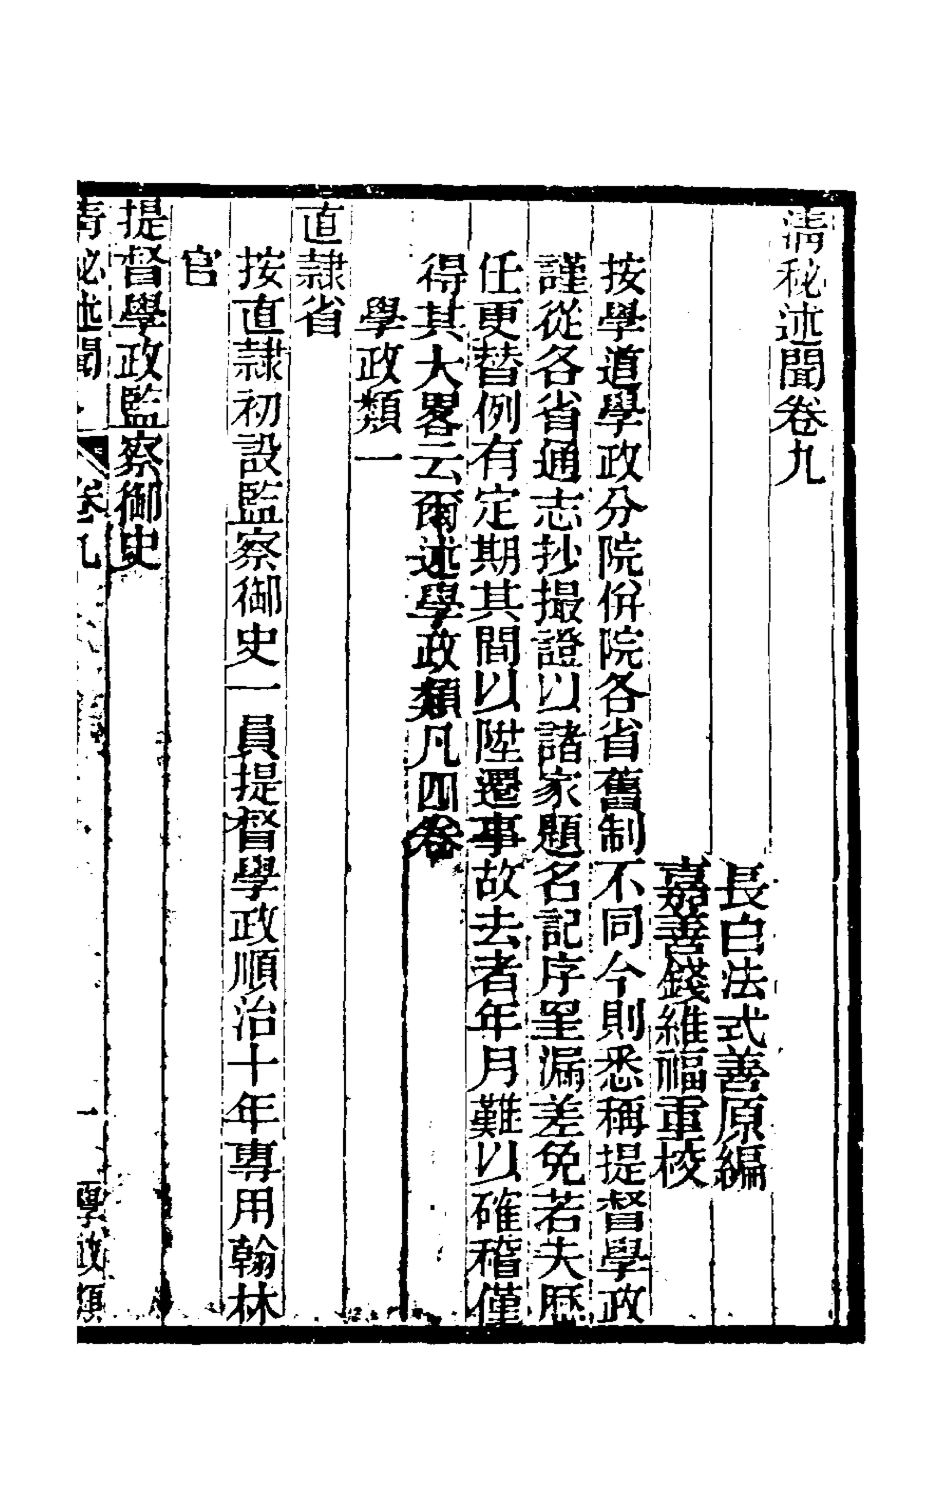 淸秘述聞卷九
長白法式善原編
嘉善錢維福重校
按學道學政分院併院各省舊制不同今則悉稱提督學政
謹從各省通志抄撮證以諸家題名記序罣漏差免若夫歷
任更替例有定期其間以陞遷事故去者年月難以確稽僅
得其大畧云爾述學政類凡四卷
學政類一
直隷省
按直隷初設監察御史一員提督學政順治十年專用翰林
官
提督學政監察御史
淸秘述聞 卷九 一 學政類